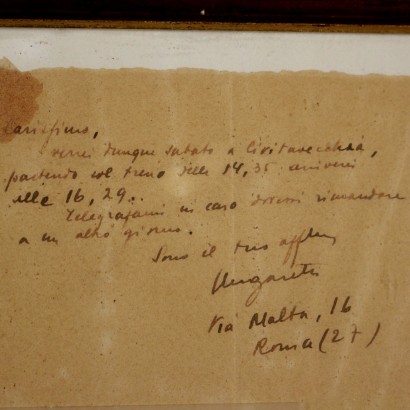 Carissimo,
verrei dunque sabato a Civitavecchia,
partendo col treno delle 14,35 arriverei
alle 16,29.
Telegrafami in caso dovessi rimandare
a un altro giorno.
Sono il tuo aff
Ungaretti
Via Malta, 16
Roma (27)